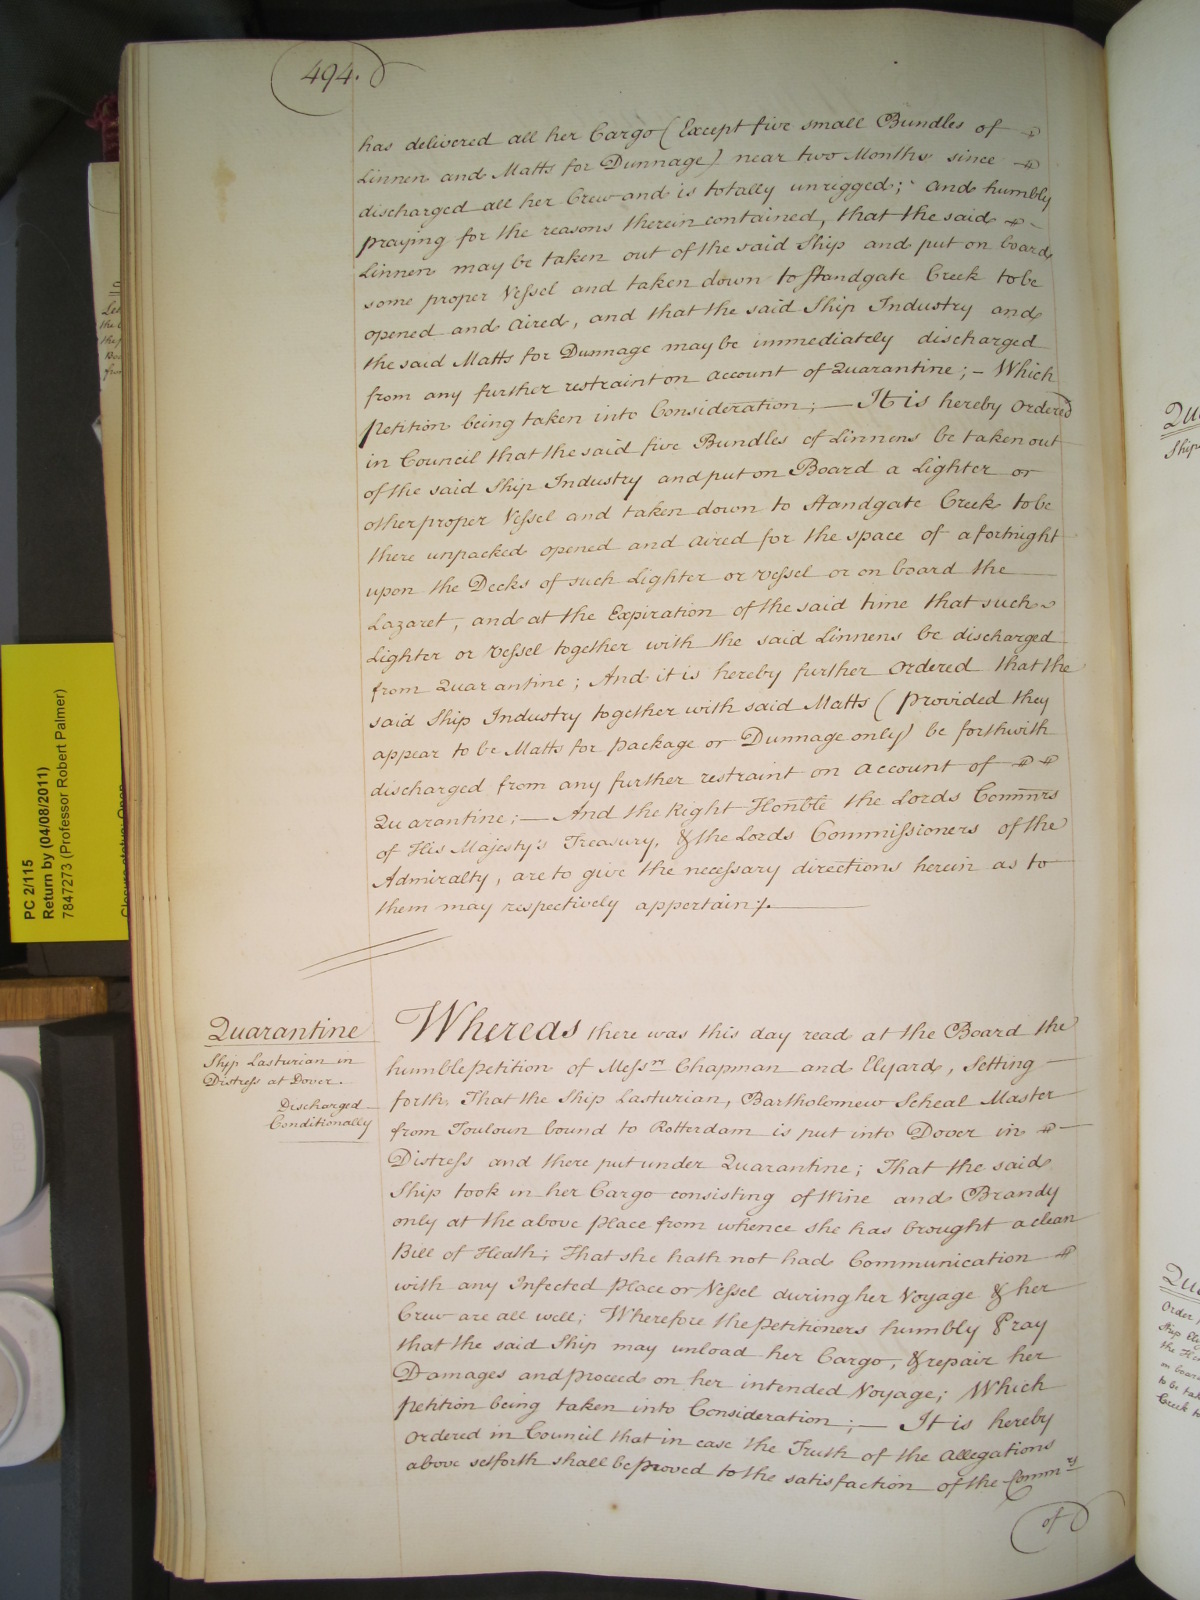 494.
has delivered all her Cargo (Except five small Bundles of
Linnen and Matts for Dunnage) near two Months since
discharged all her Crew and is totally unrigged; and humbly
praying for the reasons therein contained, that the said
Linnen may be taken out of the said Ship and put on board
some proper Vessel and taken down to Standgate Creek to be
opened and Aired, and that the said Ship Industry and
the said Matts for Dunnage may be immediately discharged
from any further restraint on account of Quarantine; - Which
petition being taken into Consideration; — It is hereby Ordered
in Council that the said five Bundles of Linnens be taken out
of the said Ship Industry and put on Board a Lighter or
other proper Vessel and taken down to Standgate Creek to be
there unpacked opened and aired for the space of a fortnight
upon the Decks of such Lighter or Vessel or on board the
Lazaret, and at the Expiration of the said time that such
Lighter or Vessel together with the said Linnens be discharged
from Quarantine; And it is hereby further Ordered that the
said Ship Industry together with said Matts (provided they
appear to be Matts for package or Dunnage only) be forthwith
discharged from any further restraint on account of
Quarantine; — And the Right Honble the Lords Commrs
of His Majesty's Treasury, & the Lords Commissioners of the
Admiralty, are to give the necessary directions herein as to
them may respectively appertain ·/.
Quarantine
Ship Lasturian in
Distress at Dover.
Discharged
Conditionally
Whereas there was this day read at the Board the
humble petition of Messrs Chapman and Elyard, Setting
forth, That the Ship Lasturian, Bartholomew Scheal Master
from Touloun bound to Rotterdam is put into Dover in
Distress and there put under Quarantine; That the said
Ship took in her Cargo consisting of Wine and Brandy
only at the above place from whence she has brought a clean
Bill of Health; That she hath not had Communication
with any Infected Place or Vessel during her Voyage & her
Crew are all well; Wherefore the petitioners humbly Pray
that the said Ship may unload her Cargo, & repair her
Damages and proceed on her intended Voyage; Which
petition being taken into Consideration; — It is hereby
Ordered in Council that in case the Truth of the Allegations
above setforth shall be proved to the satisfaction of the Commrs
of
PC 2/115
Return by (04/08/2011)
7847273 (Professor Robert Palmer)